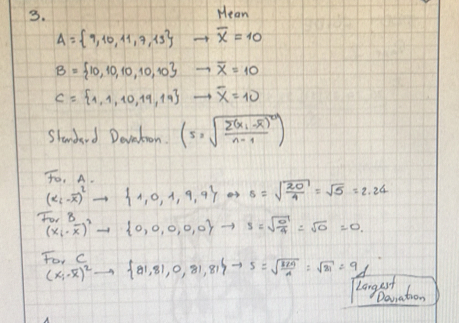 3.
Mean
A = {9,10,11,7,13} → X̄ = 10
B = {10,10,10,10,10} → X̄ = 10
C = {1,1,10,19,19} → X̄ = 10
Standard Deviation. (s = √(Σ(xᵢ - x̄)²/(n-1)))
For A.
(xᵢ-x̄)² → {1,0,1,9,9} ⇔ s = √(20/4) = √5 = 2.24
For B
(xᵢ-x̄)² → {0,0,0,0,0} → s = √(0/4) = √0 = 0.
For C
(xᵢ-x̄)² → {81,81,0,81,81} → s = √(324/4) = √81 = 9
Largest
Deviation